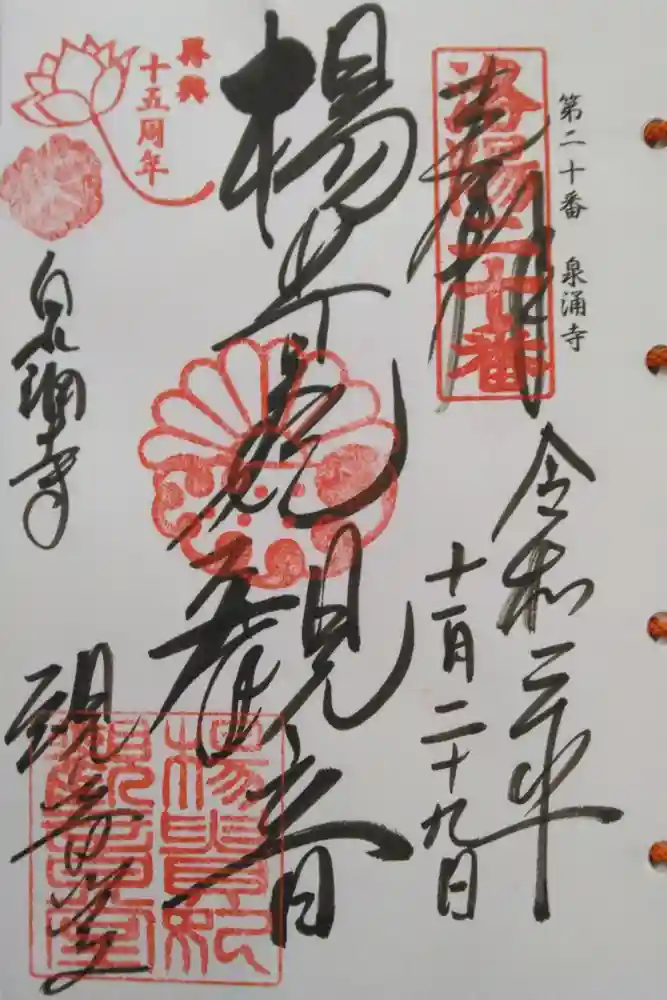 第二十番 泉涌寺
洛陽二十番
奉拝
令和二年
十一月二十九日
楊貴妃観音
楊貴妃
觀音堂
再興
十五周年
泉涌寺
観音堂